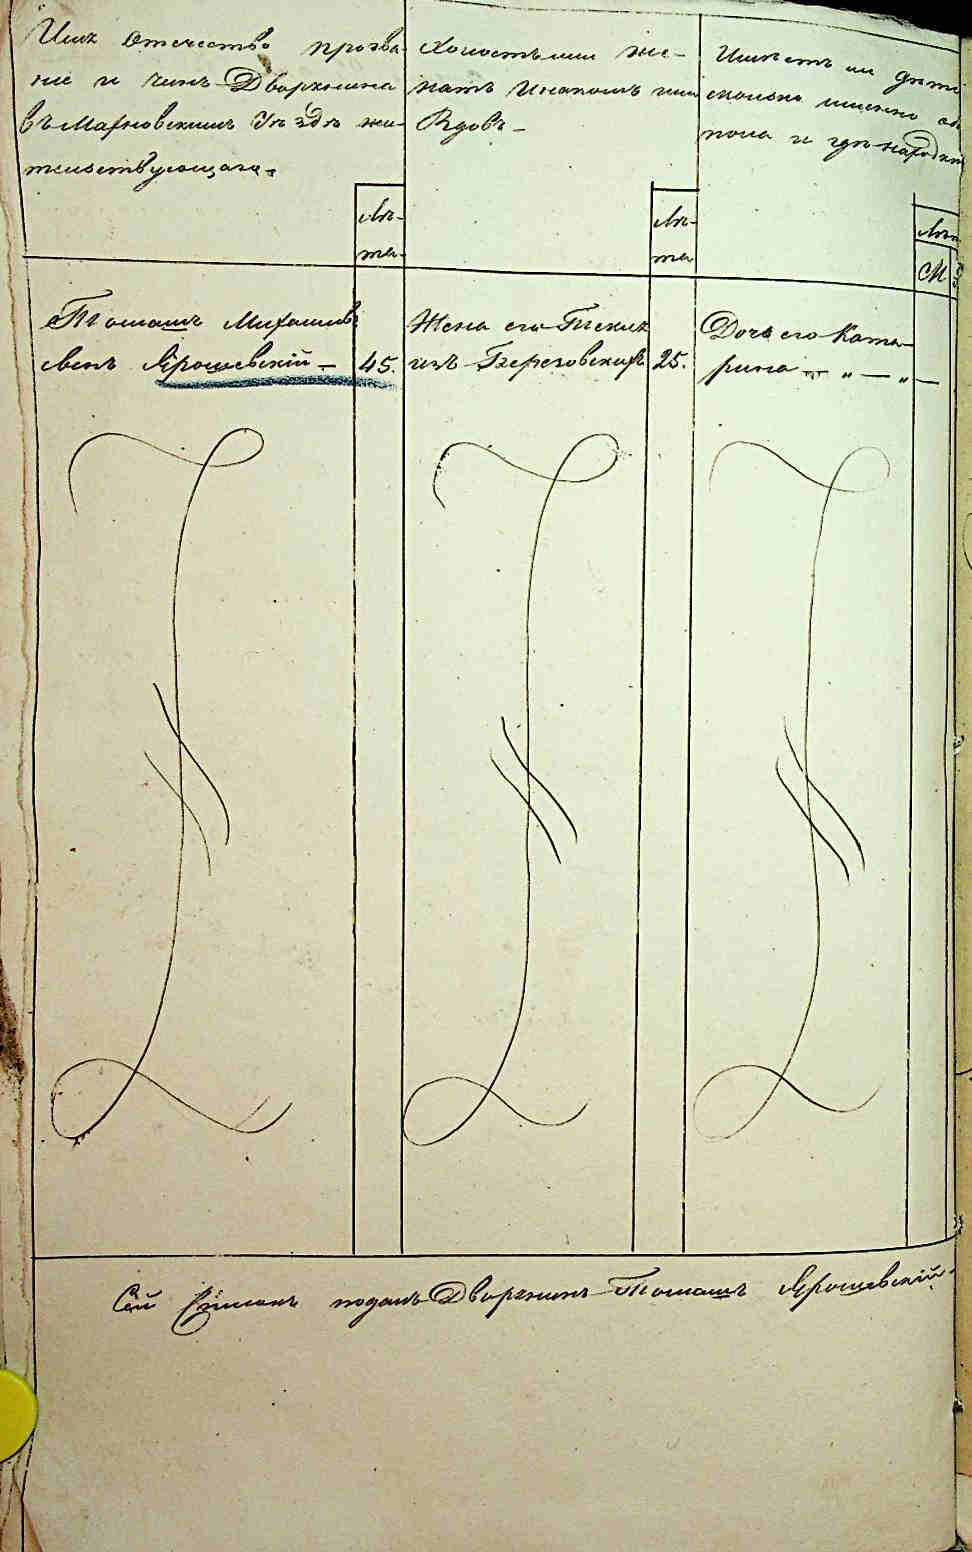 Имя Отечество прозва-
ние и чинъ Дворянина
въ Махновскомъ Уѣздѣ жи-
тельствующаго.
Лѣ-
та
Холостъ или же-
натъ и на комъ или
Вдовъ
Лѣ-
та
Имѣетъ ли дѣти
сколько именно
пола и где
Лѣта
М
Томашъ Михайловъ
сынъ Ярошевскій 45.
Жена его Текля
изъ Березовскихъ 25.
Дочь его Ката-
рина — „ — „ —
Сей Списокъ подалъ Дворянинъ Томашъ Ярошевскій.